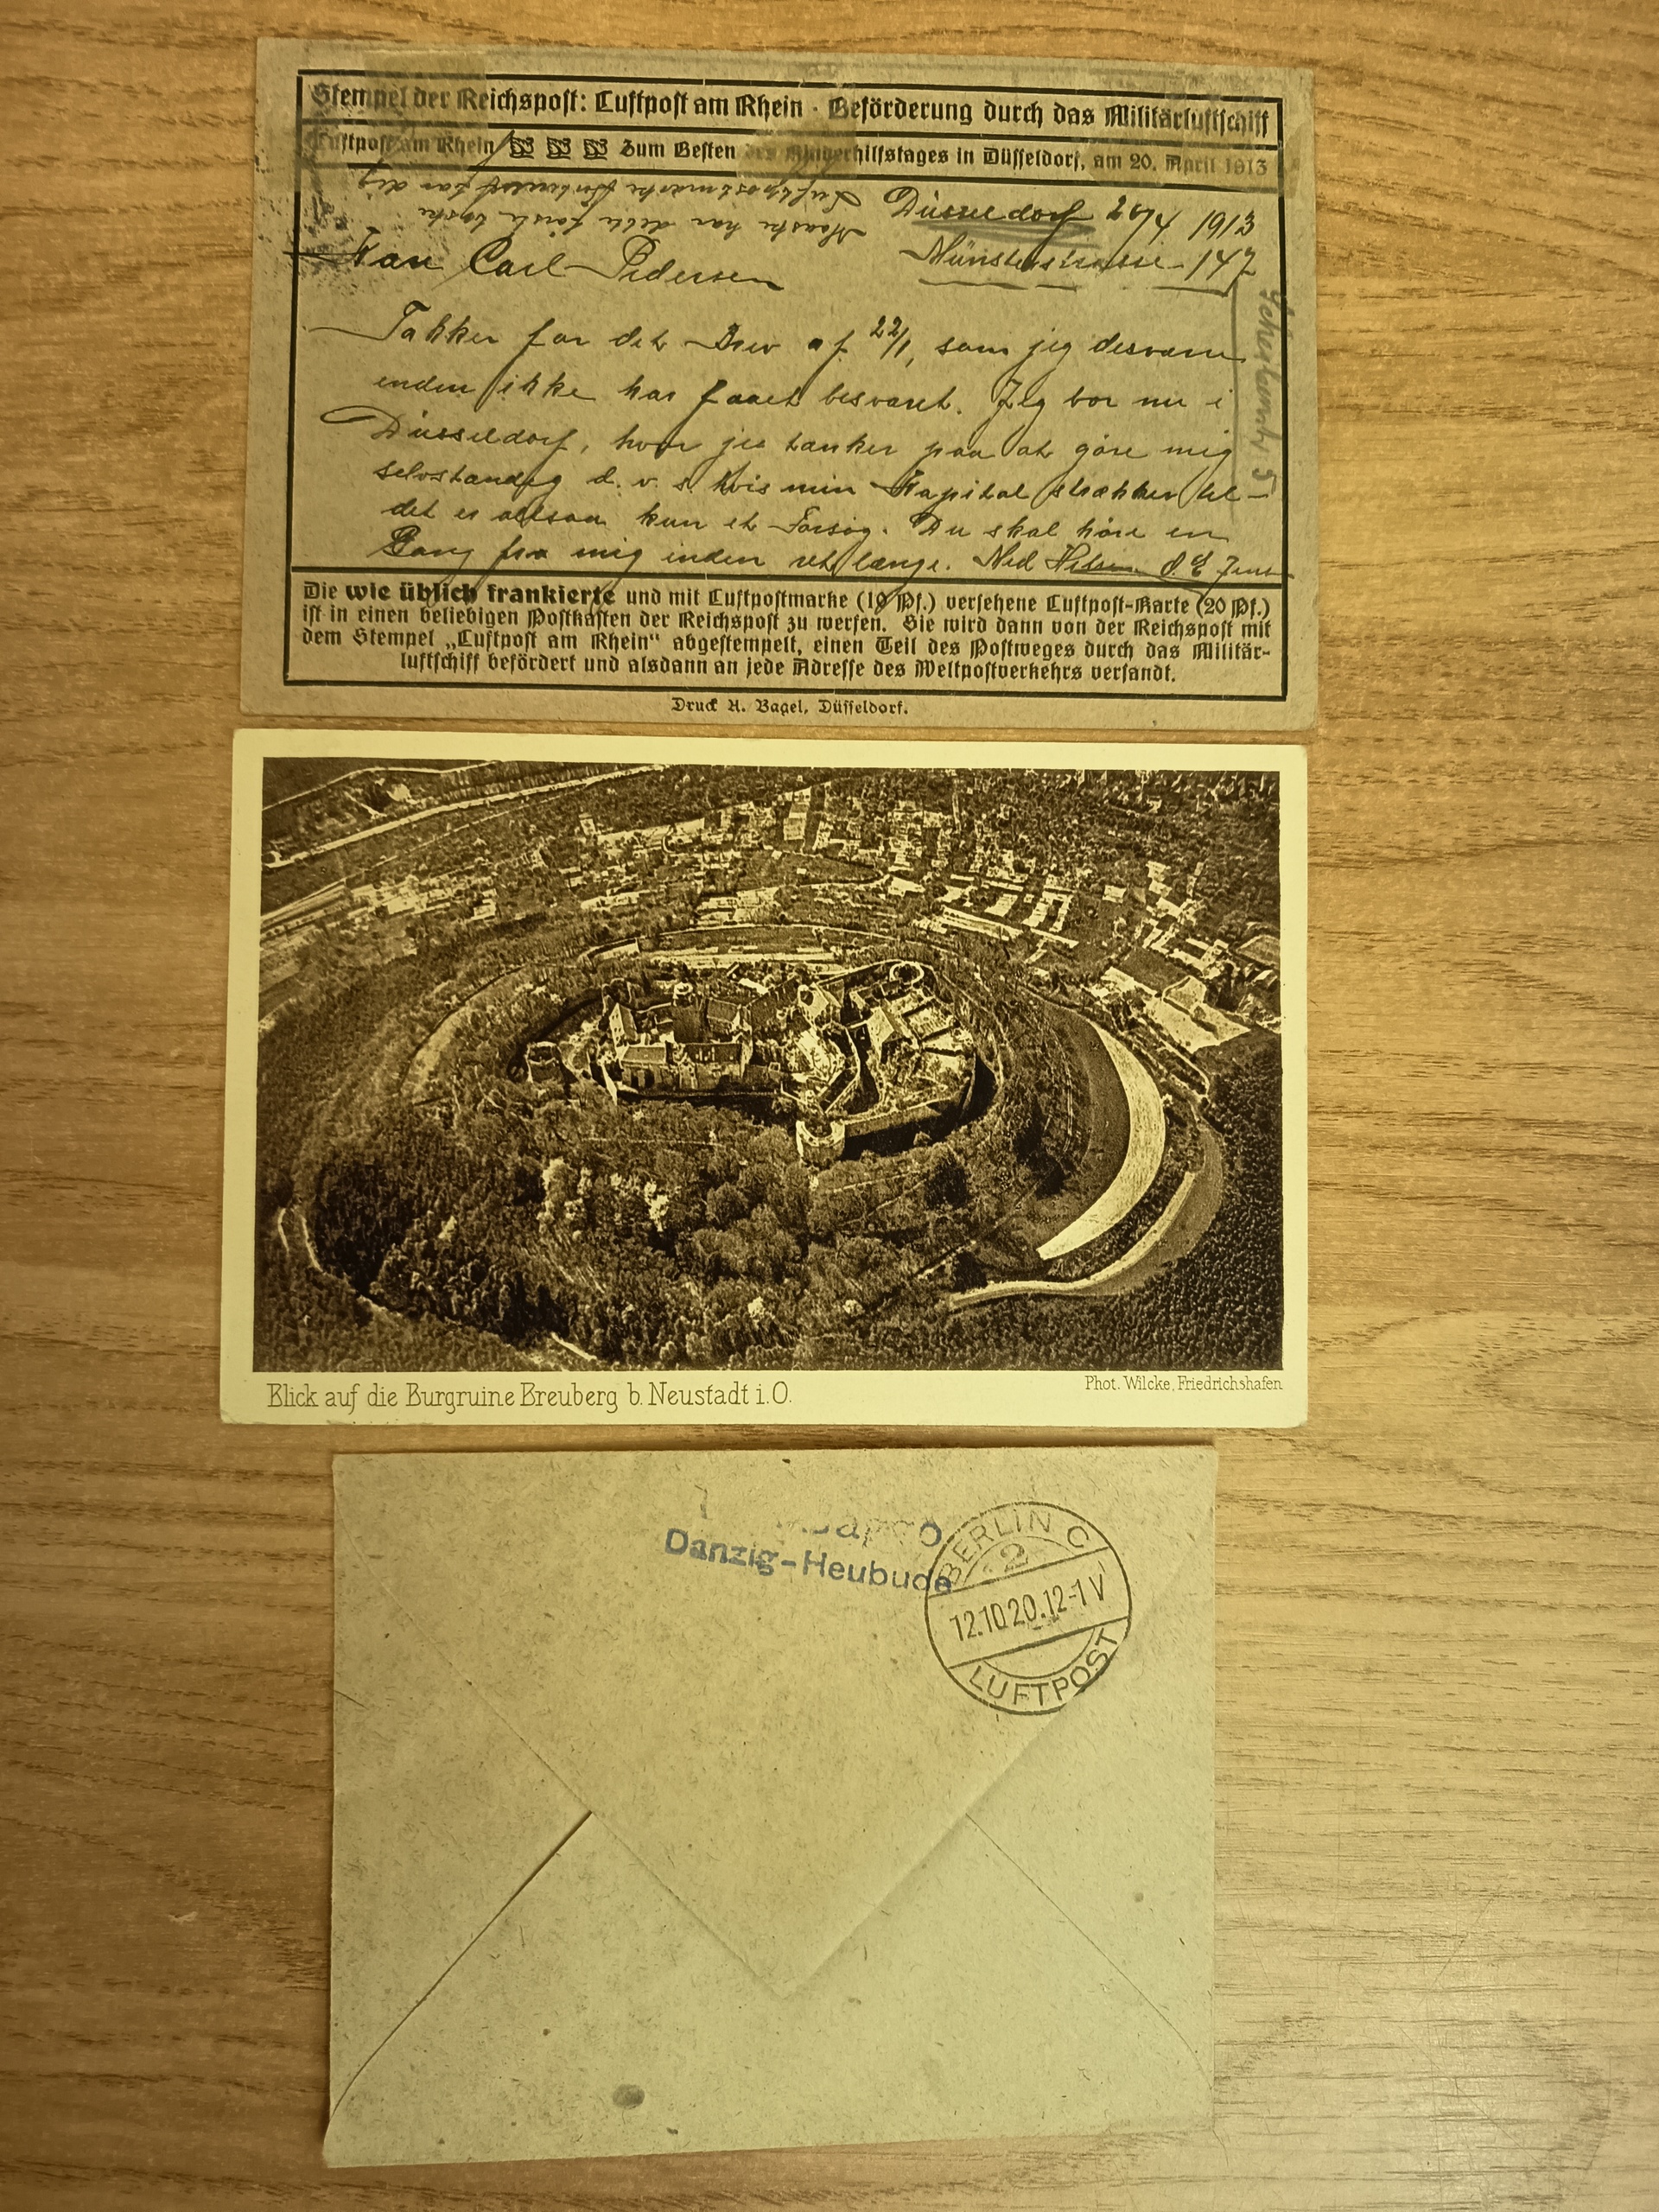 Stempel der Reichspost: Luftpost am Rhein · Beförderung durch das Militärluftschiff
Luftpost am Rhein Zum Besten des Kinderhilfstages in Düsseldorf, am 20. April 1913
Düsseldorf 20/4 1913
Münsterstrasse 147
Carl Pedersen
Takker for det Brev af 22/1, som jeg desværre
enden ikke har faaet besvaret. Jeg bor nu i
Düsseldorf, hvor jeg tænker paa at göre mig
selvstændig d. v. s. hvis min Kapital strækker til –
det er altsaa kun et Forsög. Du skal höre en
Gang fra mig inden ret længe. Med Hilsen
Die wie üblich frankierte und mit Luftpostmarke (10 Pf.) versehene Luftpost-Karte (20 Pf.)
ist in einen beliebigen Postkasten der Reichspost zu werfen. Sie wird dann von der Reichspost mit
dem Stempel „Luftpost am Rhein“ abgestempelt, einen Teil des Postweges durch das Militär-
luftschiff befördert und alsdann an jede Adresse des Weltpostverkehrs versandt.
Druck A. Bagel, Düsseldorf.
Blick auf die Burgruine Breuberg b. Neustadt i. O.
Phot. Wilcke, Friedrichshafen
Danzig-Heubude
BERLIN C
2
12.10.20.12-1 V
LUFTPOST